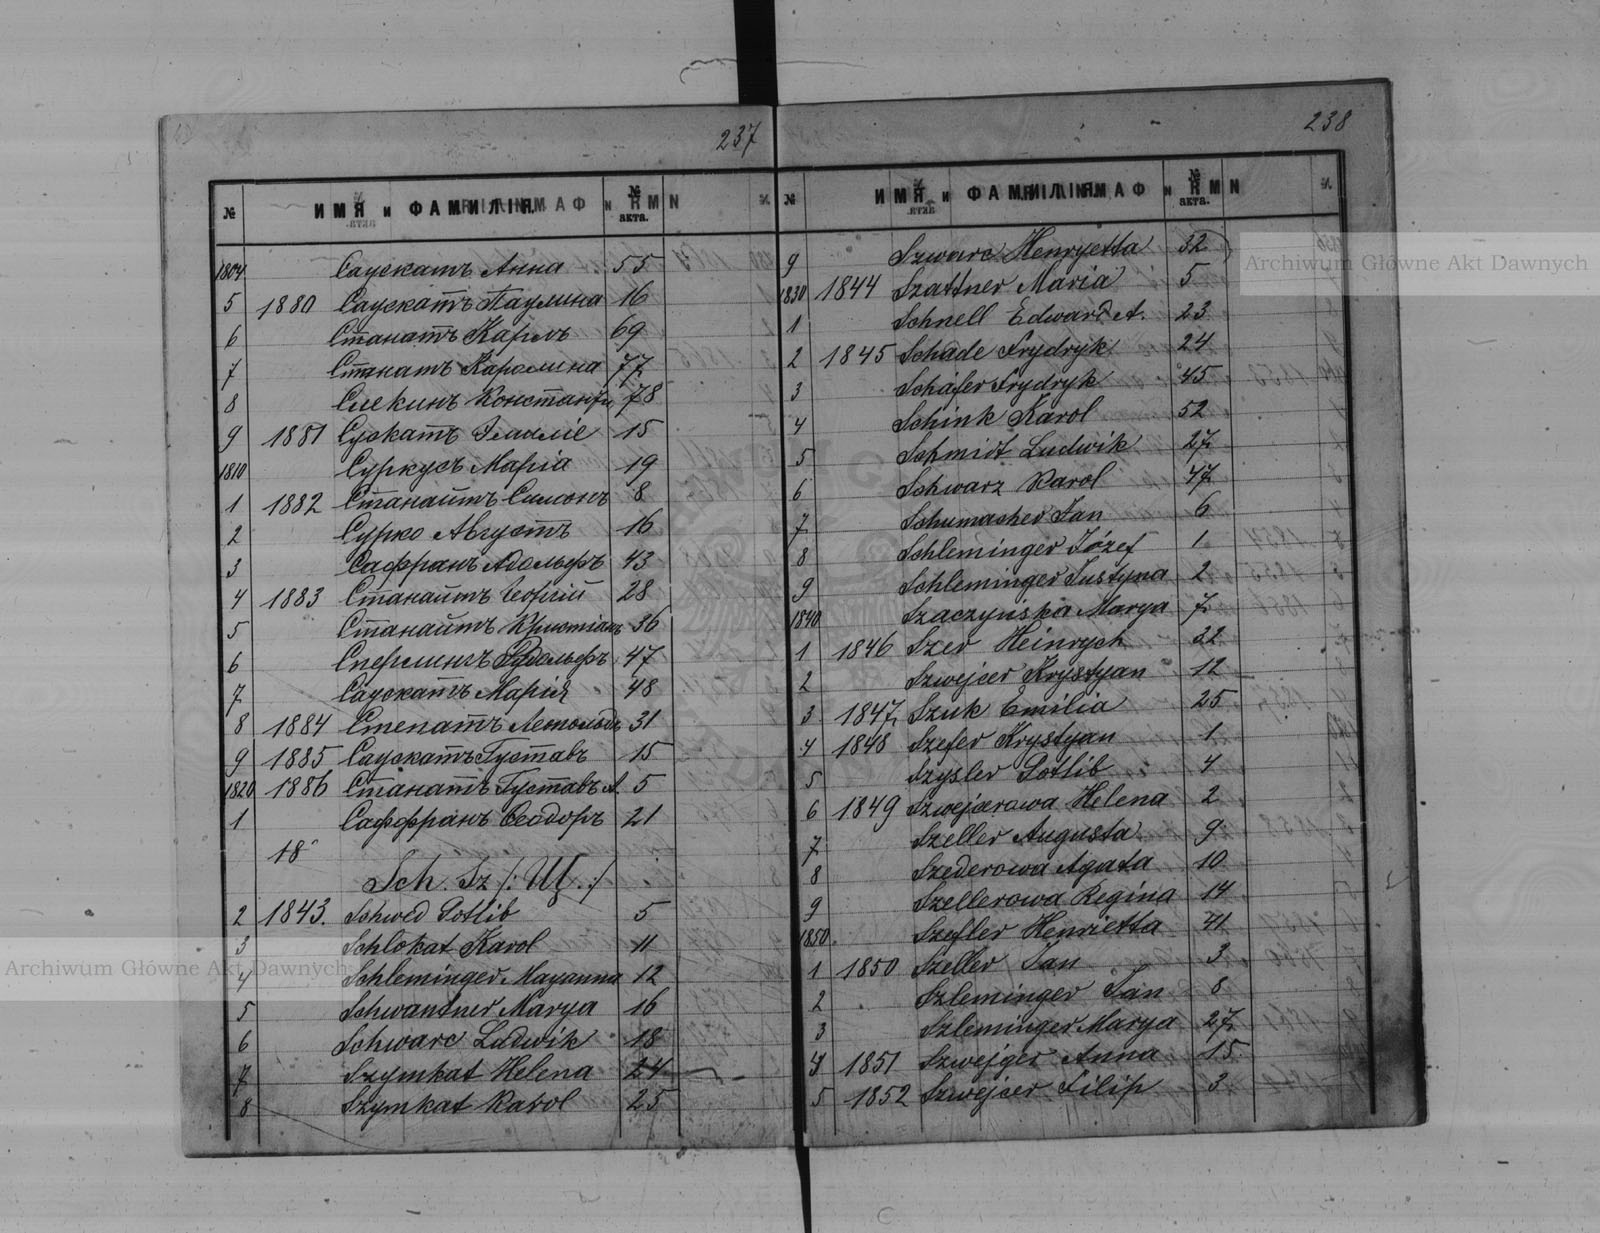 237
№ ИМЯ и ФАМИЛІЯ. № акта.
1804 Саускатъ Анна 55
5 1880 Саускатъ Паулина 16
6 Станатъ Карлъ 69
7 Станатъ Каролина 77
8 Констанція 78
9 1881 Сускатъ 15
1810 Суркусъ Марія 19
1 1882 Станайтъ Симонъ 8
2 Сурко Августъ 16
3 Саффранъ Адольфъ 43
4 1883 Станайтъ 28
5 Станайтъ Христіанъ 36
6 Сперлингъ Рудольфъ 47
7 Саускатъ Марія 48
8 1884 Степатъ Леопольдъ 31
9 1885 Саускатъ Густавъ 15
1820 1886 Станатъ Густавъ А. 5
1 Саффранъ Ѳеодоръ 21
18
Sch. Sz /: Щ :/
2 1843. Schwed Gotlib 5
3 Schlokat Karol 11
4 Schleminger Maryanna 12
5 Schwantner Marya 16
6 Schwarc Ludwik 18
7 Szymkat Helena 24
8 Szymkat Karol 25
238
№ ИМЯ и ФАМИЛІЯ. № акта.
9 Szwarc Henryetta 32
1830 1844 Szattner Maria 5
1 Schnell Edward A. 23
2 1845 Schade Frydryk 24
3 Schäfer Frydryk 45
4 Schink Karol 52
5 Schmidt Ludwik 27
6 Schwarz Karol 47
7 Schumacher Jan 6
8 Schleminger Józef 1
9 Schleminger Justyna 2
1840 Szaczyńska Marya 7
1 1846 Szer Heinrych 32
2 Szwejcer Krystyan 12
3 1847 Szuk Emilia 25
4 1848 Szefer Krystyan 1
5 Szysler Gotlib 4
6 1849 Szwejcerowa Helena 2
7 Szeller Augusta 9
8 Szederowa Agata 10
9 Szellerowa Regina 14
1850. Szefler Henrietta 41
1 1850 Szeller Jan 3
2 Szleminger Jan 8
3 Szleminger Marya 27
4 1851 Szwejger Anna 15
5 1852 Szwejcer Filip 3
Archiwum Główne Akt Dawnych
Archiwum Główne Akt Dawnych